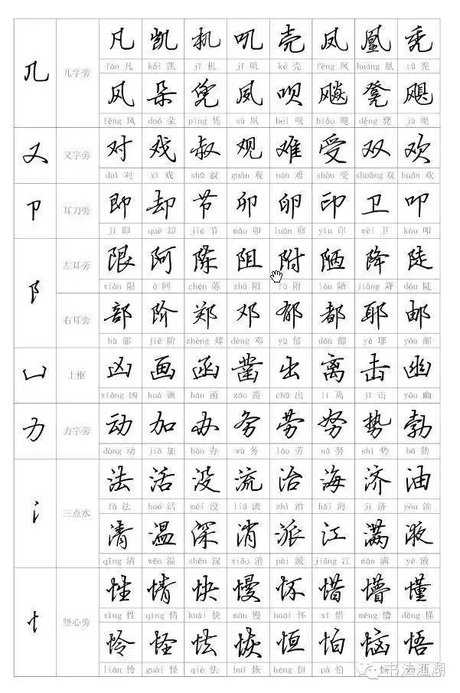 几 几字旁 凡 凯 机 叽 壳 凤 凰 秃
fán 凡 kǎi 凯 jī 机 jī 叽 ké 壳 fèng 凤 huáng 凰 tū 秃
风 朵 凭 夙 呗 飚 凳 飓
fēng 风 duǒ 朵 píng 凭 sù 夙 bei 呗 biāo 飚 dèng 凳 jù 飓
又 又字旁 对 戏 叔 观 难 受 双 欢
duì 对 xì 戏 shū 叔 guān 观 nán 难 shòu 受 shuāng 双 huān 欢
卩 耳刀旁 即 却 节 卯 卵 印 卫 叩
jí 即 què 却 jié 节 mǎo 卯 luǎn 卵 yìn 印 wèi 卫 kòu 叩
阝 左耳旁 限 阿 除 阻 附 陋 降 陡
xiàn 限 ā 阿 chú 除 zǔ 阻 fù 附 lòu 陋 jiàng 降 dǒu 陡
右耳旁 部 阶 郑 邓 郁 都 耶 邮
bù 部 jiē 阶 zhèng 郑 dèng 邓 yù 郁 dōu 都 yē 耶 yóu 邮
凵 上框 凶 画 函 凿 出 离 击 幽
xiōng 凶 huà 画 hán 函 záo 凿 chū 出 lí 离 jī 击 yōu 幽
力 力字旁 动 加 办 务 劳 努 势 勃
dòng 动 jiā 加 bàn 办 wù 务 láo 劳 nǔ 努 shì 势 bó 勃
氵 三点水 法 活 没 流 治 海 济 油
fǎ 法 huó 活 méi 没 liú 流 zhì 治 hǎi 海 jì 济 yóu 油
清 温 深 消 派 江 满 液
qīng 清 wēn 温 shēn 深 xiāo 消 pài 派 jiāng 江 mǎn 满 yè 液
忄 竖心旁 性 情 快 慢 怀 惜 懵 懂
xìng 性 qíng 情 kuài 快 màn 慢 huái 怀 xī 惜 měng 懵 dǒng 懂
怜 怪 怯 恢 恒 怕 恼 悟
lián 怜 guài 怪 qiè 怯 huī 恢 héng 恒 pà 怕
书法江湖